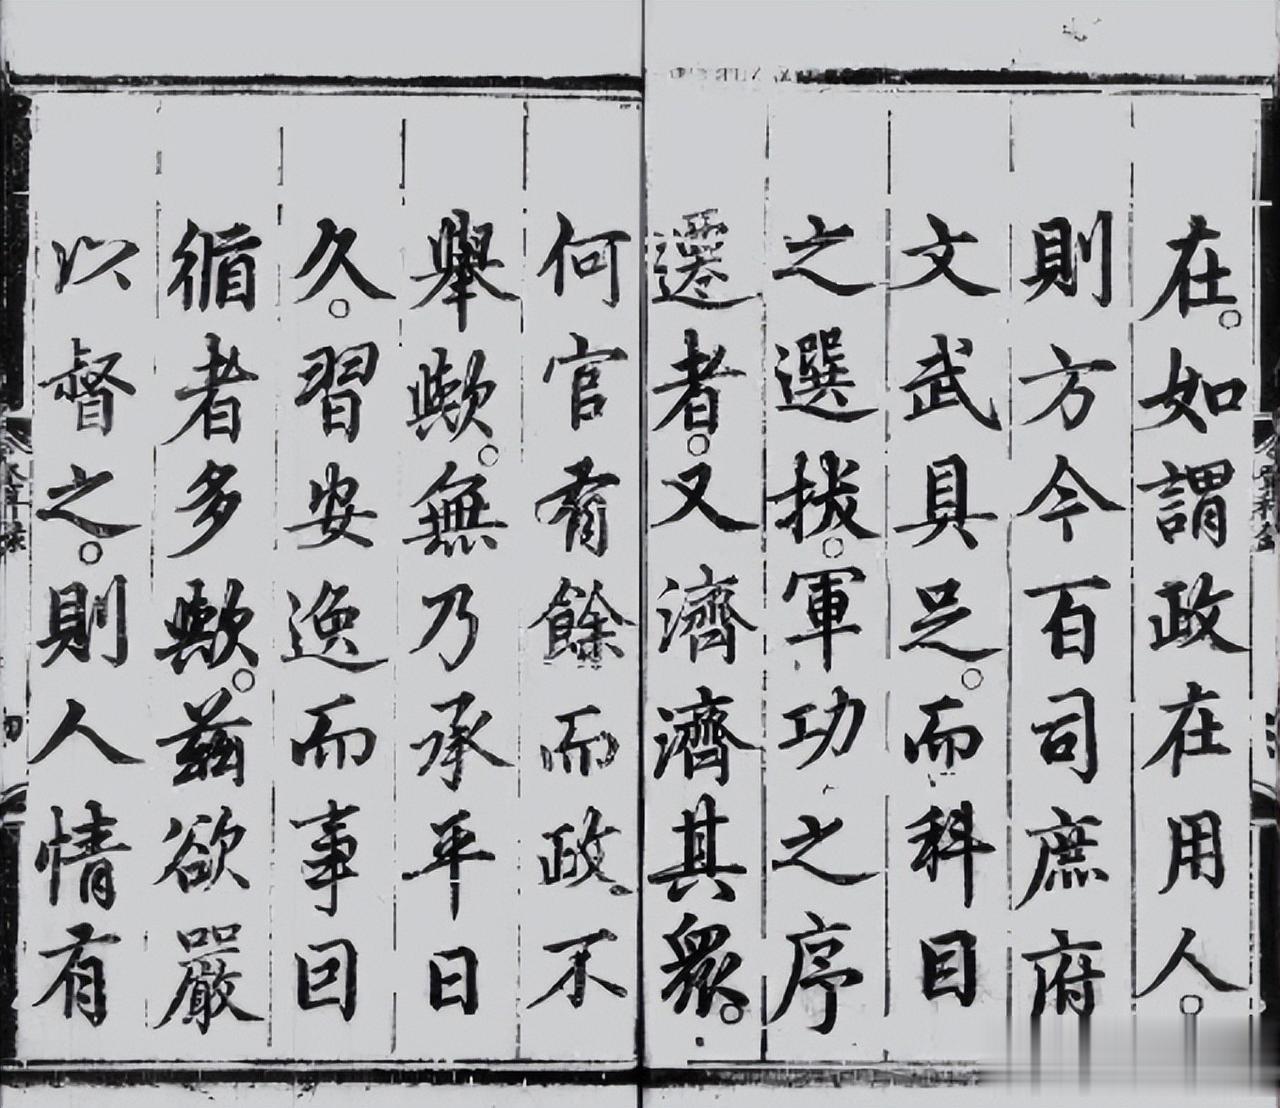 在。如謂政在用人。
則方今百司庶府
文武具足。而科目
之選拔。軍功之序
遷者。又濟濟其眾。
何官有餘而政不
舉歟。無乃承平日
久。習安逸而事因
循者多歟。茲欲嚴
以督之。則人情有